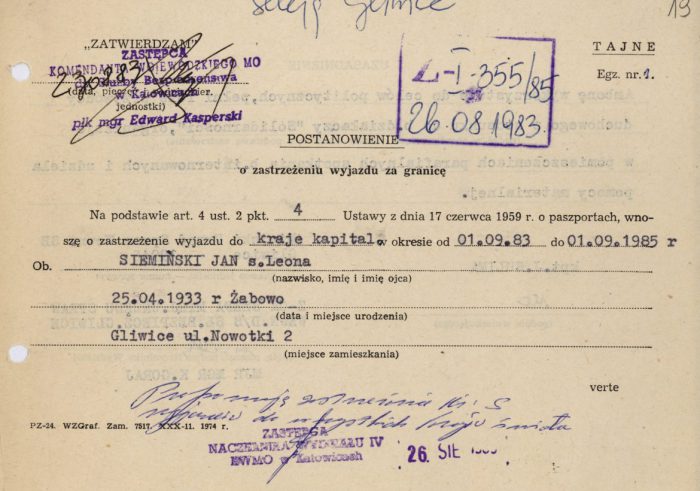 19
„ZATWIERDZAM”
ZASTĘPCA
KOMENDANTA WOJEWÓDZKIEGO MO
Służby Bezpieczeństwa
w Katowicach
(data, pieczęć kier.
jednostki)
płk mgr Edward Kasperski
TAJNE
Egz. nr 1.
Z-I-355/85
26 08 1983.
POSTANOWIENIE
o zastrzeżeniu wyjazdu za granicę
Na podstawie art. 4 ust. 2 pkt. 4 Ustawy z dnia 17 czerwca 1959 r. o paszportach, wno-
szę o zastrzeżenie wyjazdu do kraje kapital. w okresie od 01.09.83 do 01.09.1985 r
Ob. SIEMIŃSKI JAN s.Leona
(nazwisko, imię i imię ojca)
25.04.1933 r Żabowo
(data i miejsce urodzenia)
Gliwice ul.Nowotki 2
(miejsce zamieszkania)
verte
wyjazdu do wszystkich krajów świata
PZ-24. WZGraf. Zam. 7517. XXX-11. 1974 r.
ZASTĘPCA
NACZELNIKA WYDZIAŁU IV
KWMO w Katowicach
26. SIE 1983